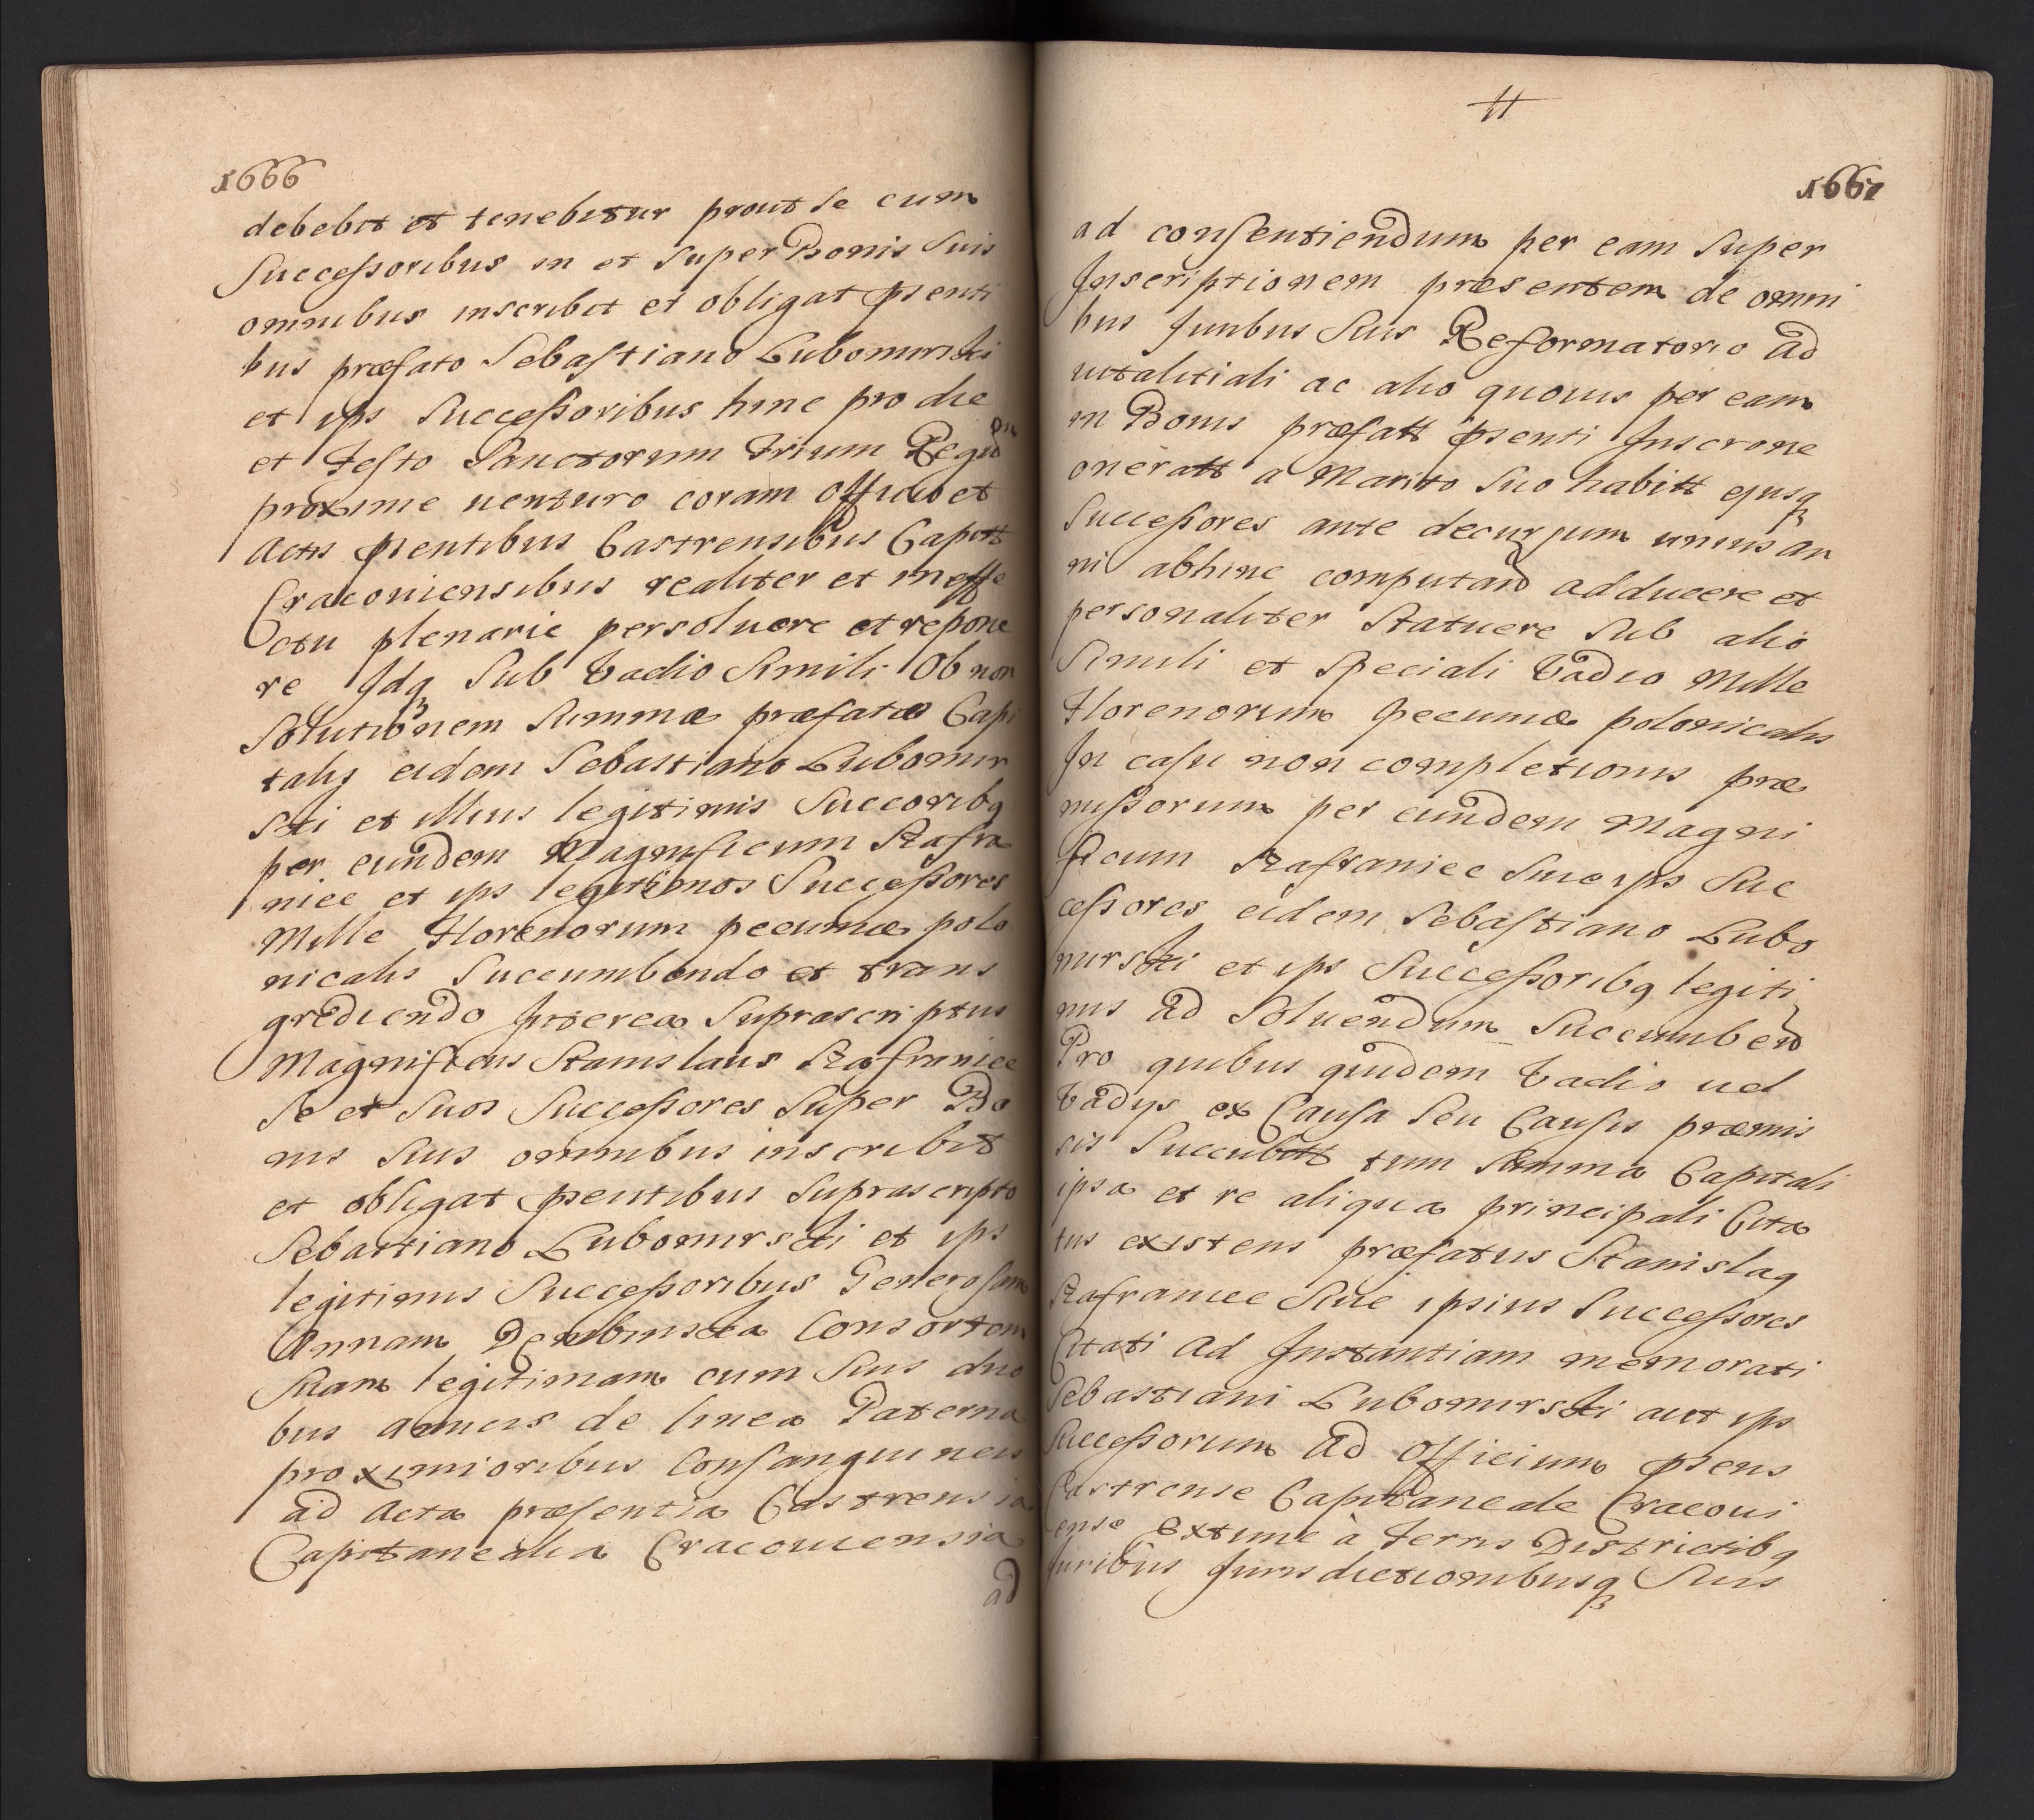 1666
debebit et tenebitur prout se cum
Successoribus in et super Bonis Suis
omnibus inscribit et obligat psenti
bus præfato Sebastiano Lubomirski
et ips Successoribus hinc pro die
et Festo Sanctorum Trium Regu
proxime venturo coram officio et
Actis psentibus Castrensibus Capitt
Cracoviensibus realiter et in effe
ctu plenarie persoluere et repone
re Idq Sub Vadio Simili Ob non
Solutionem Summæ præfatæ Capi
talis eidem Sebastiano Lubomir
ski et illius legitimis Succoribq
per eundem Magnificum Szafra
niec et ips legitimos Successores
Mille Florenorum pecuniæ polo
nicalis Succumbendo et trans
grediendo Interea Suprascriptus
Magnificus Stanislaus Szafraniec
Se et Suos Successores Super Bo
nis Suis omnibus inscribit
et obligat psentibus Suprascripto
Sebastiano Lubomirski et ips
legitimis Successoribus Generosam
Annam Dembinska Consortem
Suam legitimam cum Suis duo
bus amicis de linea Paterna
proximioribus Consanguineis
ad Acta præsentia Castrensia
Capitanealia Cracouiensia
ad
1667
ad consentiendum per eam Super
Inscriptionem præsentem de omni
bus Juribus Suis Reformatorio Ad
uitalitiali ac alio quouis per eam
in Bonis præfatt psenti Inscrone
oneratt a Marito Suo habitt ejusq
Successores ante decursum unius an
ni abhinc computand adducere et
personaliter Statuere Sub alio
Simili et Speciali Vadio Mille
Florenorum pecuniæ polonicalis
In casu non completionis præ
missorum per eundem Magni
ficum Szafraniec Siue ips Suc
cessores eidem Sebastiano Lubo
mirski et ips Successoribq legiti
mis Ad Soluendum Succumbend
Pro quibus quidem Vadio uel
Vadijs ex Causa Seu Causis præmis
sis Succubitt tum Summa Capitali
ipsa et re aliqua principali Cita
tus existens præfatus Stanislaq
Szafraniec Siue ipsius Successores
Citati Ad Instantiam memorati
Sebastiani Lubomirski aut ips
Successorum Ad Officium psens
Castrense Capitaneale Cracoui
ense Extunc à Terris Districtibq
Juribus Jurisdictionibusq Suis